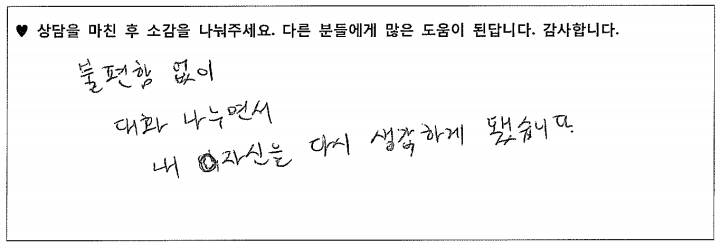 ♥ 상담을 마친 후 소감을 나눠주세요. 다른 분들에게 많은 도움이 된답니다. 감사합니다.
불편함 없이
대화 나누면서
내 자신을 다시 생각하게 됐습니다.